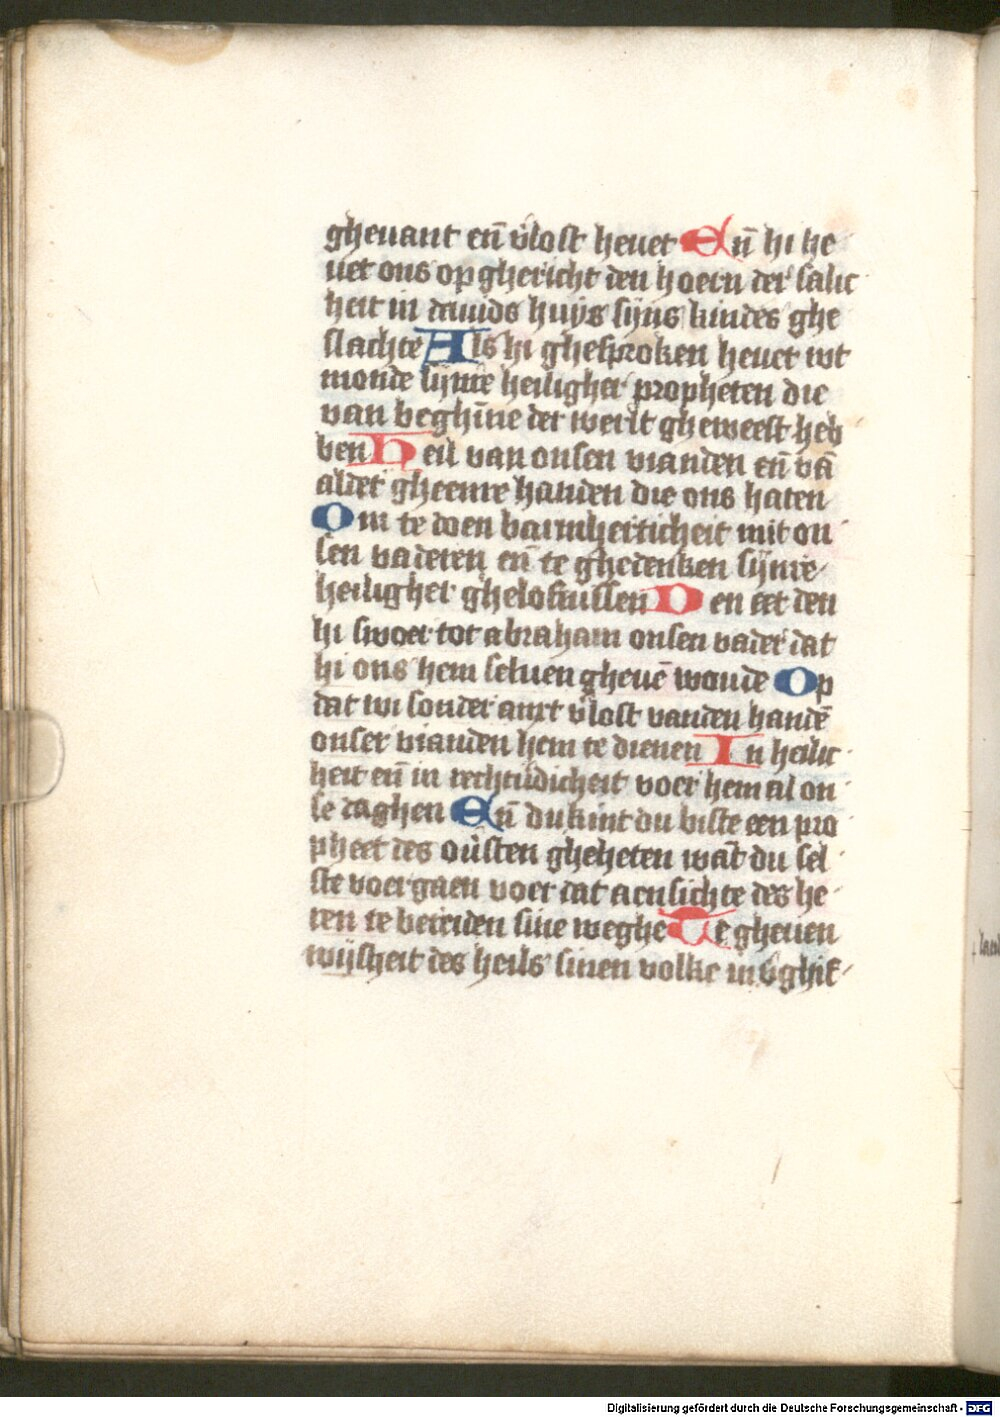 gheuant en̄ v̄lost heuet En̄ hi he
uet ons op ghericht den hoern der salic
heit in dauids huijs sijns kindes ghe
slachte Als hi ghesproken heuet wt
monde sijnre heiligher propheten die
van beghīne der werlt gheweest heb
ben Heil van onsen vianden en̄ vā
aldet gheenre handen die ons haten
Om te doen barmherticheit mit on
sen vaderen en̄ te ghedenken sijnre
heiligher ghelofnissen Den eet den
hi swoer tot abraham onsen vader dat
hi ons hem seluen gheuē woude Op
dat wi sonder anxt v̄lost vanden handē
onser vianden hem te dienen In heilic
heit en̄ in rechtūdicheit voer hem al on
se daghen En̄ du kint du biste een pro
pheet des ousten gheheten want du sel
ste voer gaen voer dat aensichte des he
ren te bereiden sine weghe Te gheuen
wijsheit des heils sinen volke in v̄ghif